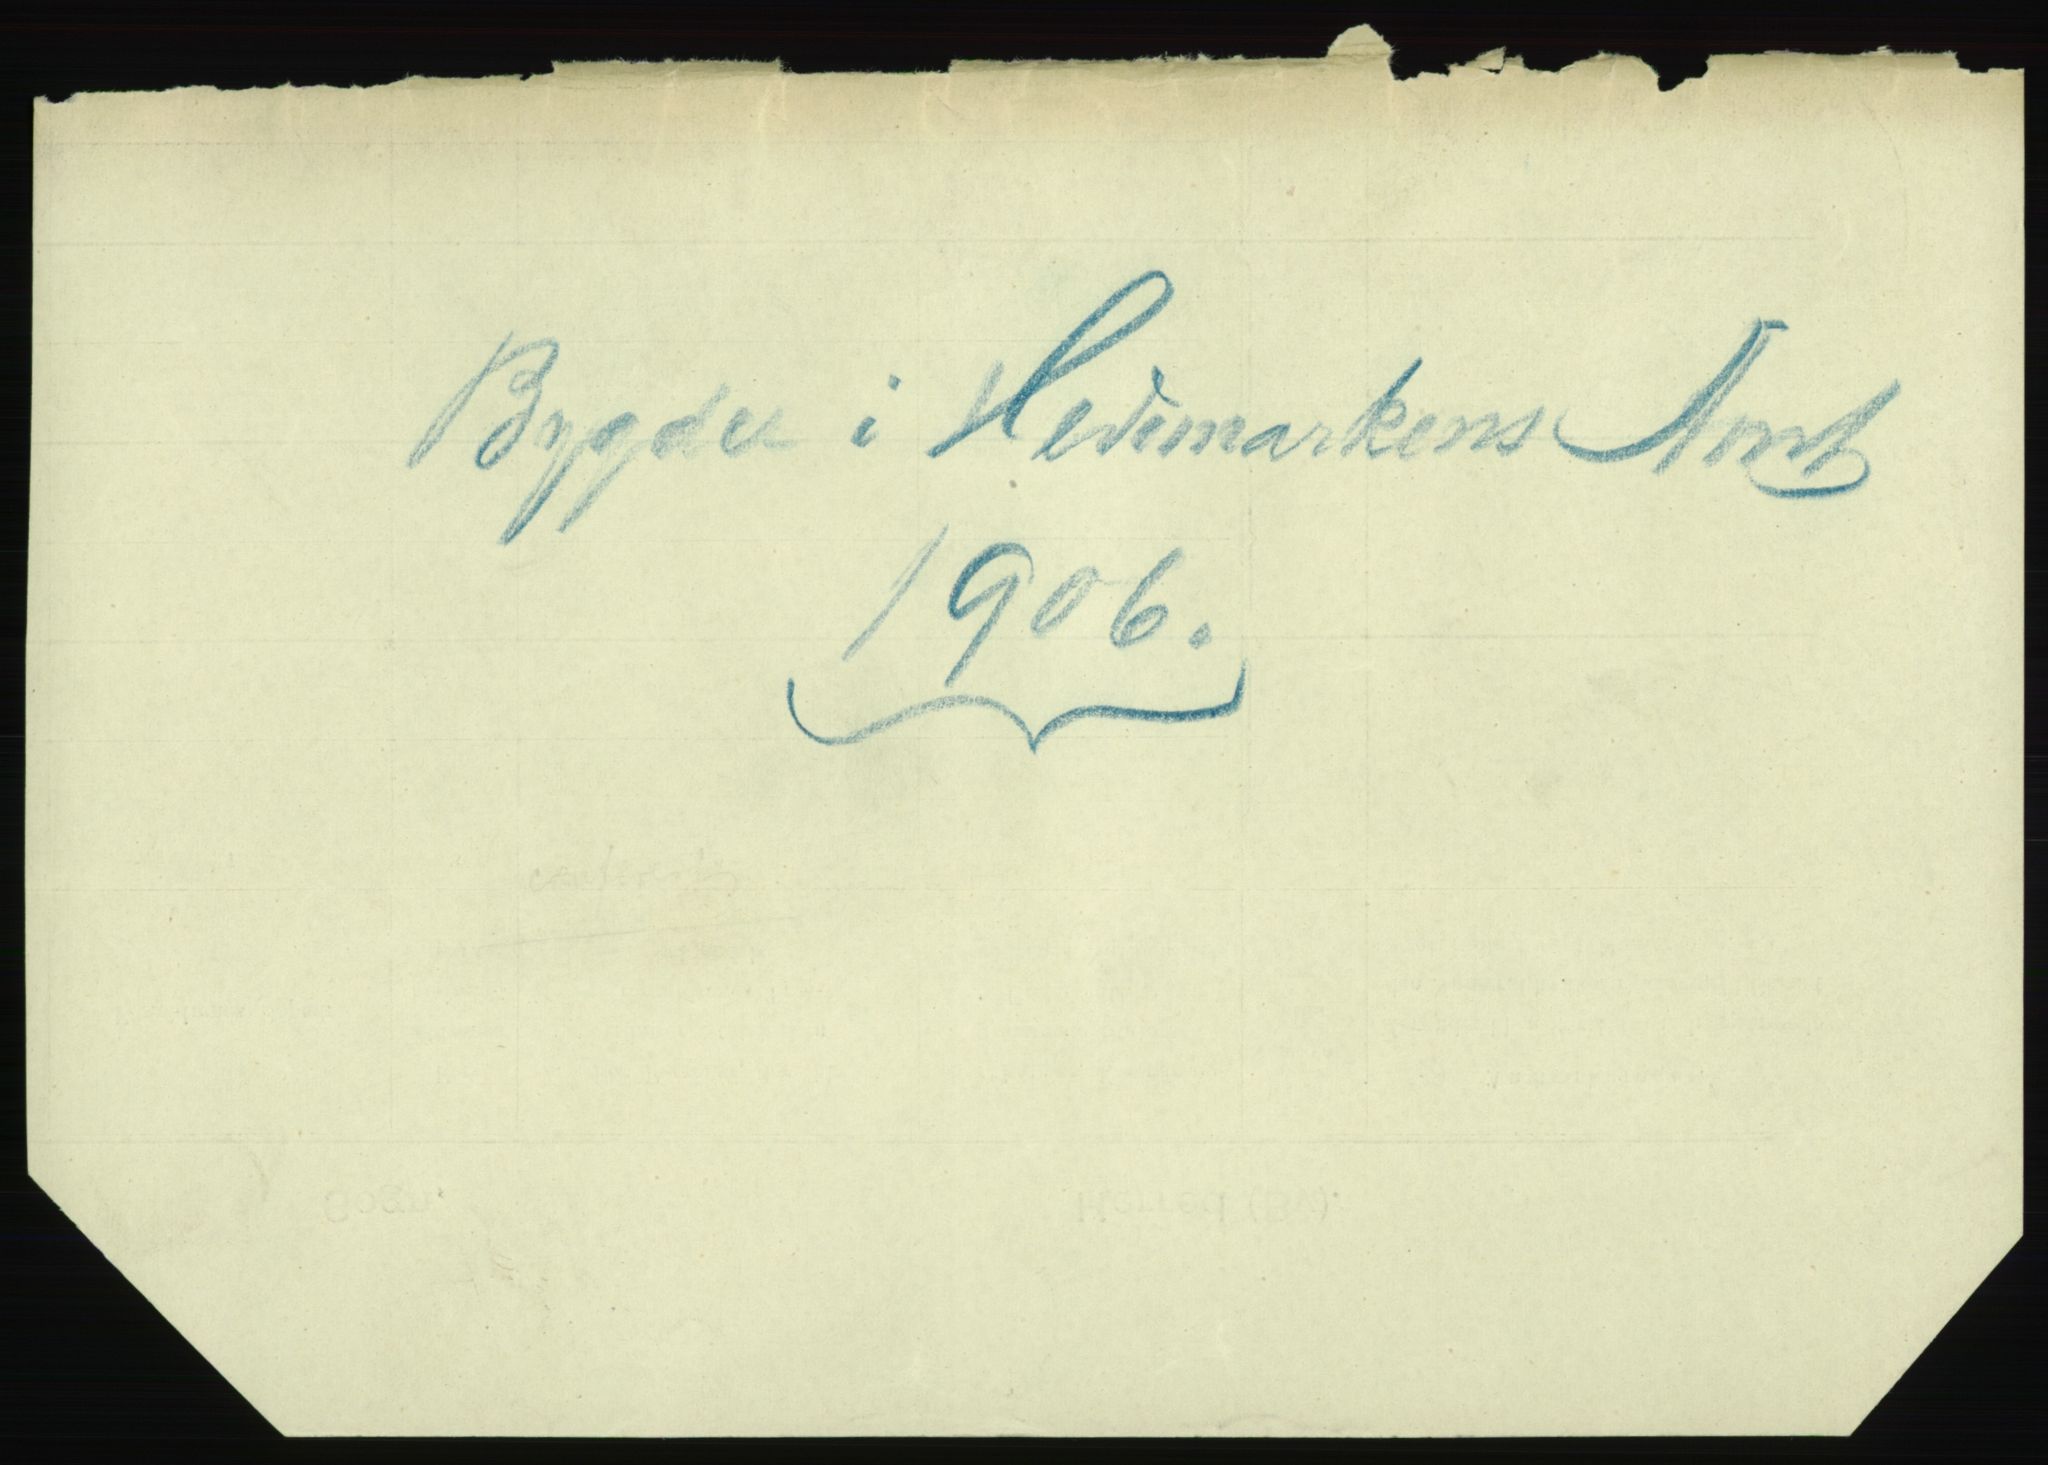 Bygder i Hedemarkens Amt
1906.